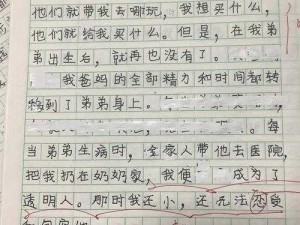 他们就带我去哪玩，我想买什么，
他们就给我买什么。但是，在我弟
弟出生后，就再也没有了。
我爸妈的全部精力和时间都转
移到了弟弟身上。
每
当弟弟生病时，全家人带他去医院，
把我扔在奶奶家，我便成为了
透明人。那时我还小，还无法